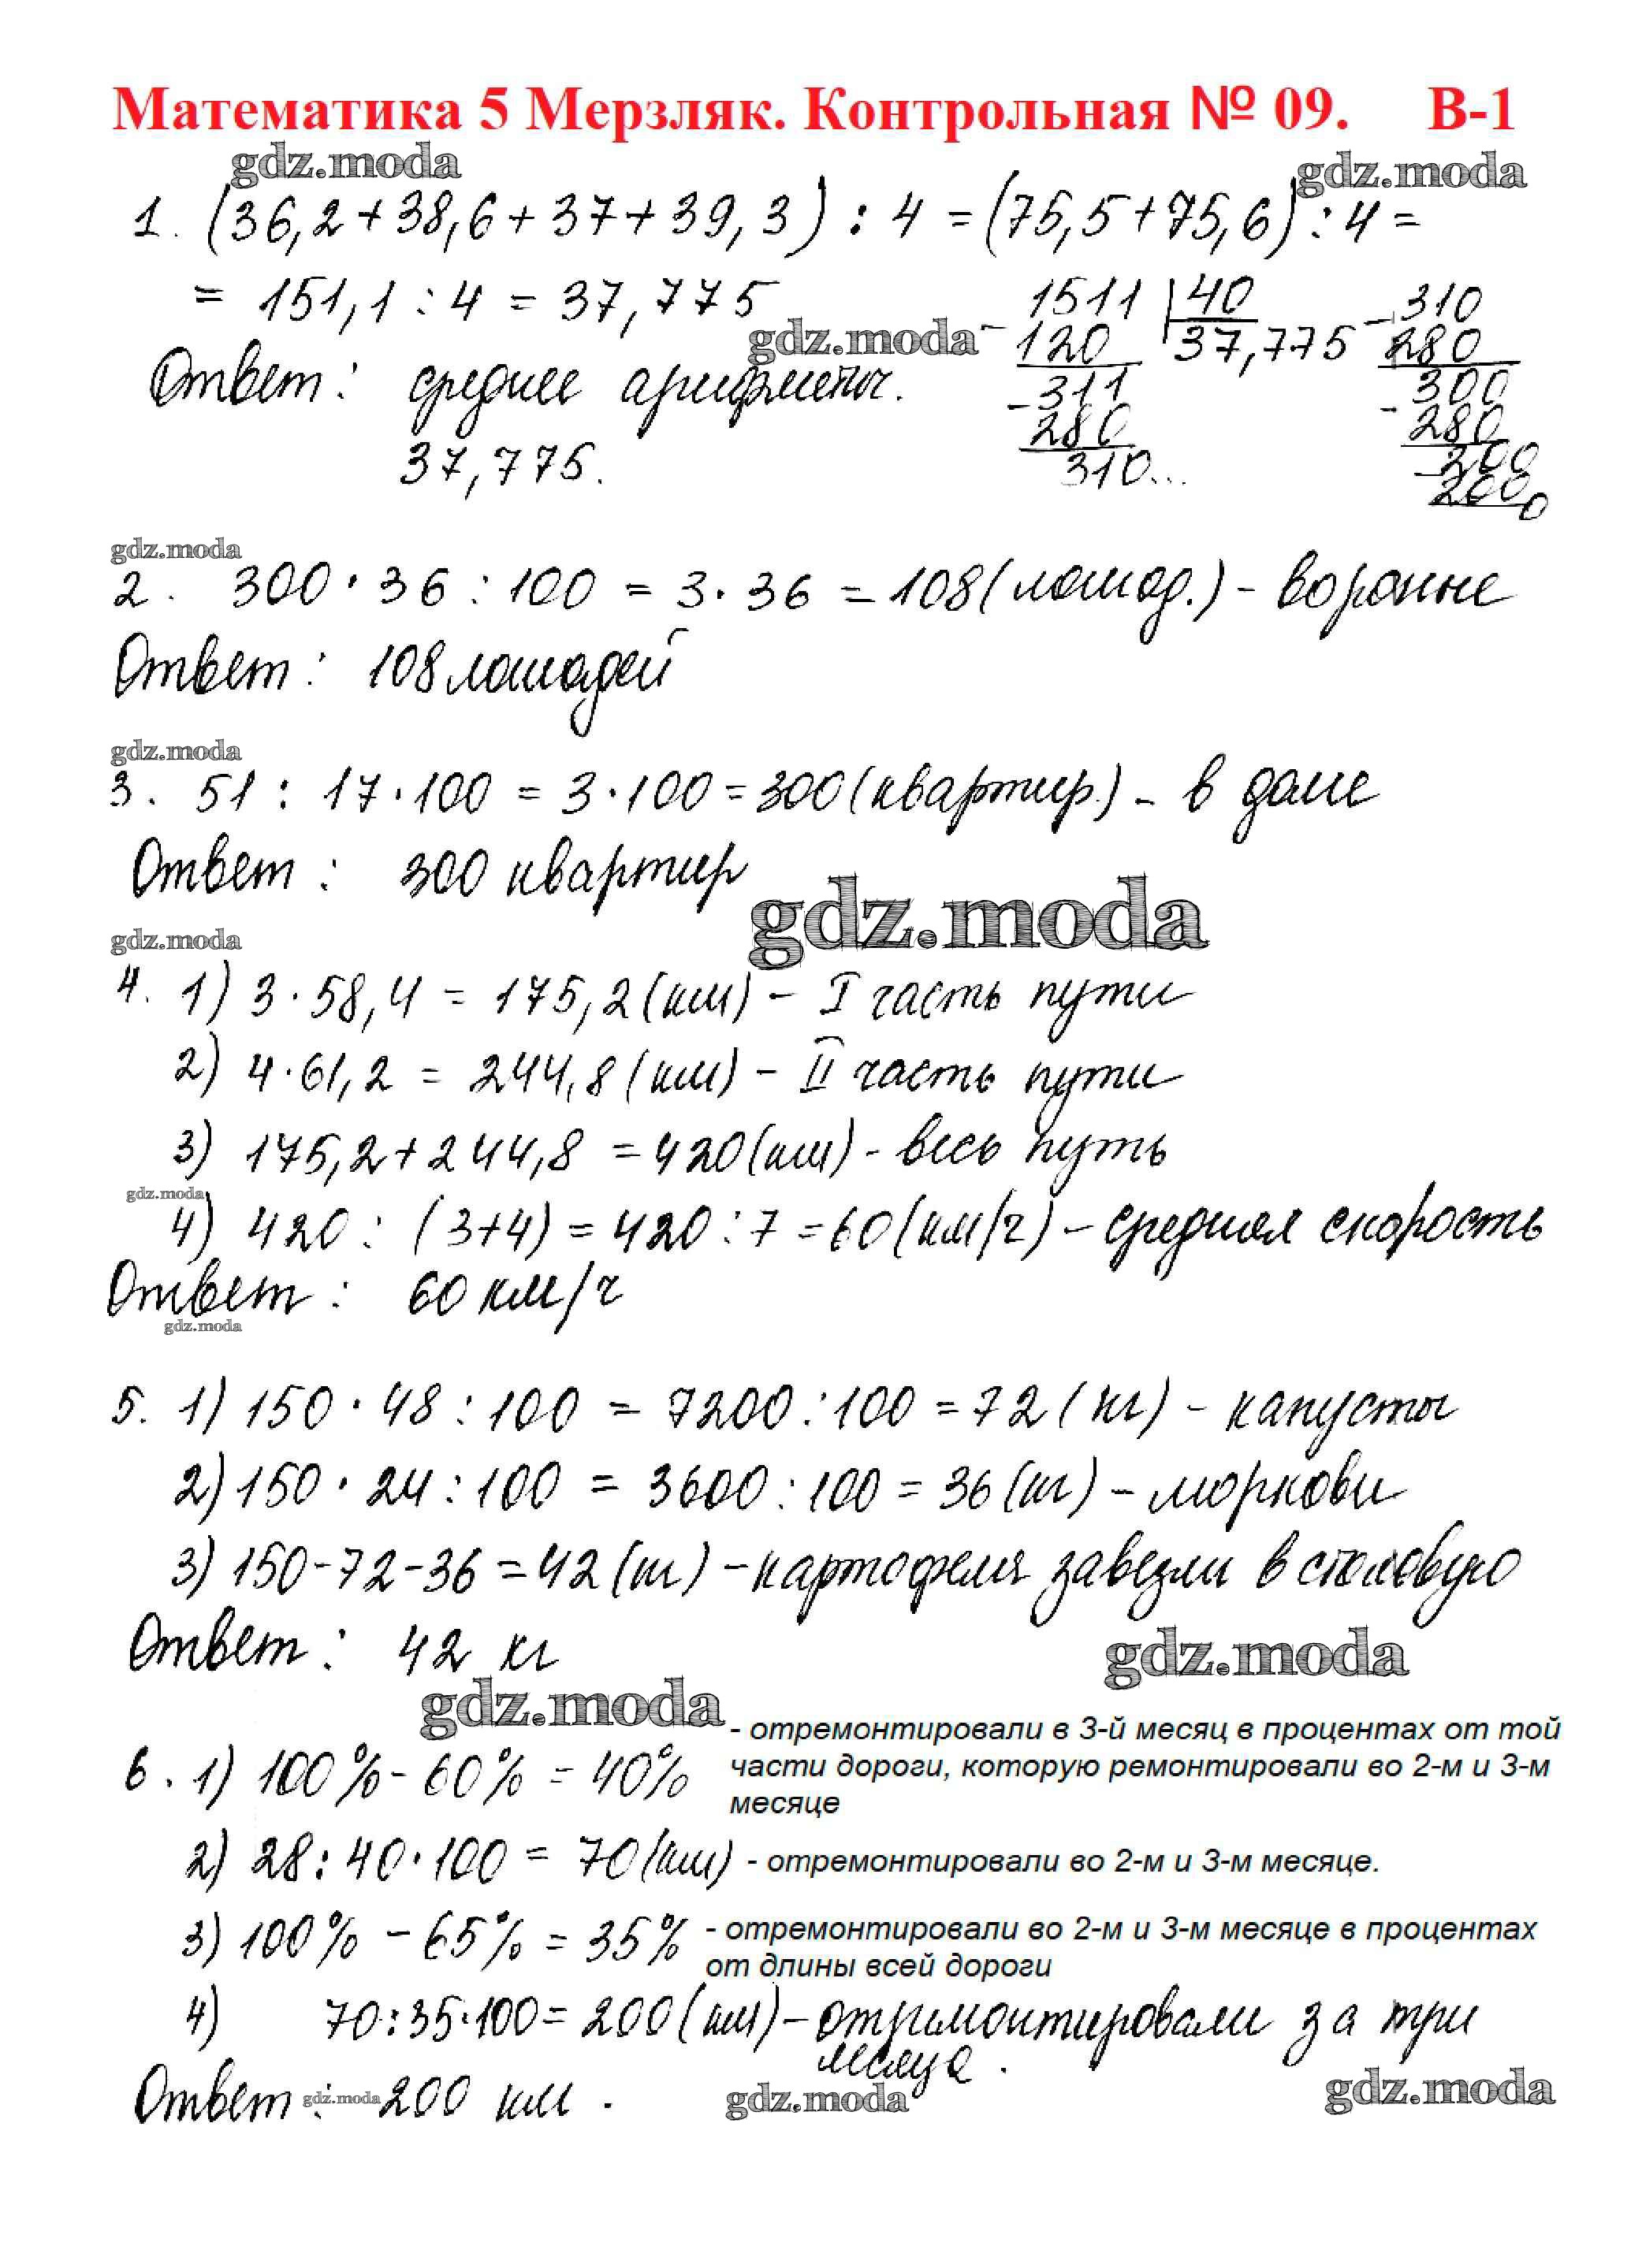 Математика 5 Мерзляк. Контрольная № 09. В-1
gdz.moda gdz.moda
1. (36,2+38,6+37+39,3) : 4 = (75,5+75,6) : 4 =
= 151,1 : 4 = 37,775
1511 | 40
- 120 37,775
- 311
280
310...
- 310
280
- 300
280
- 200
200
0
gdz.moda
Ответ: среднее арифметич.
37,775.
gdz.moda
2. 300 · 36 : 100 = 3 · 36 = 108 (лошад.) - вороные
Ответ: 108 лошадей
gdz.moda
3. 51 : 17 · 100 = 3 · 100 = 300 (квартир.) - в доме
Ответ: 300 квартир
gdz.moda
gdz.moda
4. 1) 3 · 58,4 = 175,2 (км) - I часть пути
2) 4 · 61,2 = 244,8 (км) - II часть пути
3) 175,2 + 244,8 = 420 (км) - весь путь
gdz.moda
4) 420 : (3+4) = 420 : 7 = 60 (км/ч) - средняя скорость
Ответ: 60 км/ч
gdz.moda
5. 1) 150 · 48 : 100 = 7200 : 100 = 72 (кг) - капусты
2) 150 · 24 : 100 = 3600 : 100 = 36 (кг) - моркови
3) 150 - 72 - 36 = 42 (кг) - картофеля завезли в столовую
Ответ: 42 кг
gdz.moda
gdz.moda
6. 1) 100% - 60% = 40% - отремонтировали в 3-й месяц в процентах от той
части дороги, которую ремонтировали во 2-м и 3-м
месяце
2) 28 : 40 · 100 = 70 (км) - отремонтировали во 2-м и 3-м месяце.
3) 100% - 65% = 35% - отремонтировали во 2-м и 3-м месяце в процентах
от длины всей дороги
4) 70 : 35 · 100 = 200 (км) - отримонтировали за три
месяца.
Ответ: 200 км.
gdz.moda gdz.moda gdz.moda